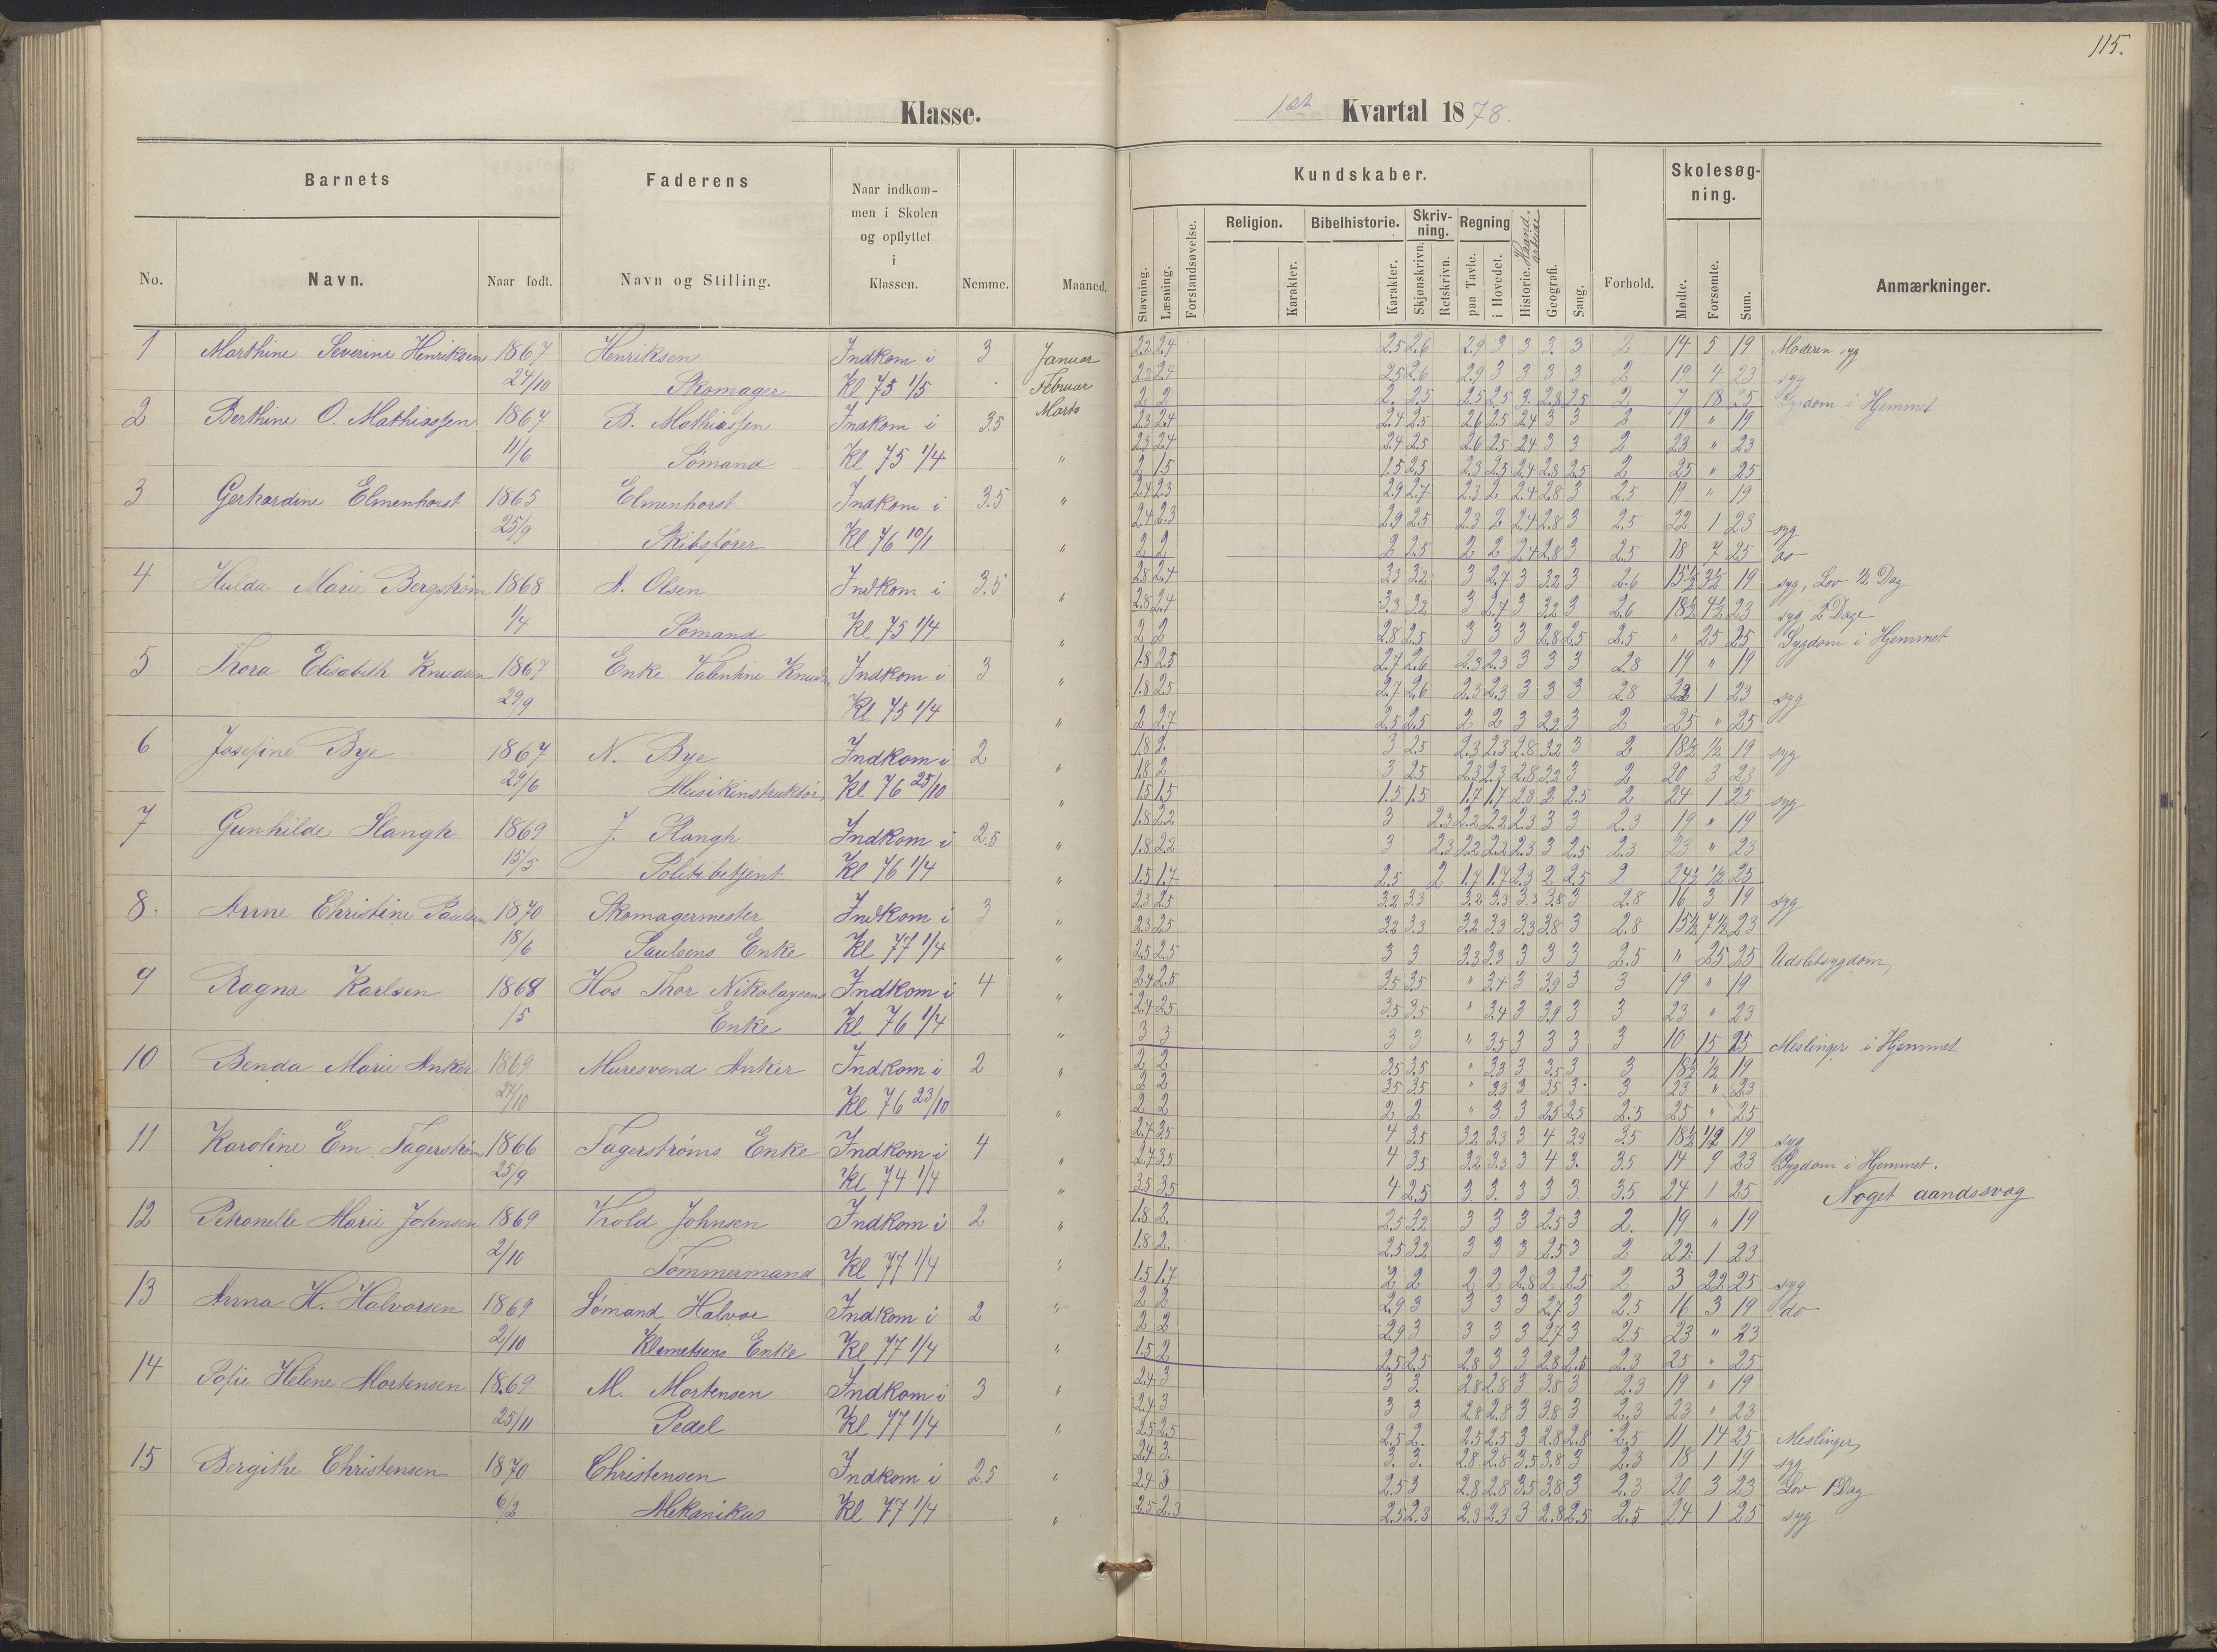 115.
Klasse.
1ste Kvartal 1878.
Barnets
Faderens
Naar indkom-
men i Skolen
og opflyttet
i
Klassen.
No.
Navn.
Naar født.
Navn og Stilling.
Nemme.
Maaned.
Kundskaber.
Skolesøg-
ning.
Stavning.
Læsning.
Forstandsøvelse.
Religion.
Karakter.
Bibelhistorie.
Karakter.
Skriv-
ning.
Skjønskrivn.
Retskrivn.
Regning
paa Tavle.
i Hovedet.
Haand-
arbeide
Historie.
Geografi.
Sang.
Forhold.
Mødte.
Forsømte.
Sum.
Anmærkninger.
1 Marthine Severine Henriksen 1867 Henriksen Indkom i 3 Januar
24/10 Skomager Kl 75 1/5 Februar
Marts
2 Berthine O. Mathiassen 1867 B. Mathiassen Indkom i 3.5
11/6 Sømand Kl 75 1/4 "
3 Gerhardine Elmenhorst 1865 Elmenhorst Indkom i 3.5 "
25/9 Skibsfører Kl 76 10/1 "
4 Hulda Marie Bergstrøm 1868 A. Olsen Indkom i 3.5 "
1/4 Sømand Kl 75 1/4 "
5 Thora Elisabeth Knudsen 1867 Enke Valentine Knudsen Indkom i 3 "
29/9 Kl 75 1/4 "
6 Josefine Bye 1867 N. Bye Indkom i 2 "
29/6 Musikinstruktør Kl 76 25/10 "
7 Gunhilde Slangh 1869 J. Slangh Indkom i 2.5 "
15/5 Politibetjent Kl 76 1/4 "
8. Anne Christine Paulsen 1870 Skomagermester Indkom i 3 "
18/6 Paulsens Enke Kl 77 1/4 "
9 Ragna Karlsen 1868 Hos Thor Nikolaysens Indkom i 4 "
15 Enke Kl 76 1/4 "
10 Benda Marie Anker 1869 Muresvend Anker Indkom i 2 "
27/10 Kl 76 23/10 "
11 Karoline Em. Fagerstrøm 1866 Fagerstrøms Enke Indkom i 4 "
25/9 Kl 74 1/4 "
12 Petronelle Marie Johnsen 1869 Krold Johnsen Indkom i 2 "
2/10 Tømmermand Kl 77 1/4 "
13 Anna H. Halvorsen 1869 Sømand Halvor Indkom i 2 "
2/10 Klemetsens Enke Kl 77 1/4 "
14 Sofie Helene Mortensen 1869 M. Mortensen Indkom i 3 "
25/11 Pedel Kl 77 1/4 "
15 Bergithe Christensen 1870 Christensen Indkom i 2.5 "
6/2 Mekanikus Kl 77 1/4 "
2.2 2.4 2.5 2.6 2.9 3 3 3. 3 2 14 5 19 Moderen syg
2.2 2.4 2.5 2.6 2.9 3 3 3 3 2 19 4 23 syg
2 2 2. 2.5 2.5 2.5 3. 2.8 2.5 2 7 18 25 Sygdom i Hjemmet
2.3 2.4 2.4 2.5 2.6 2.5 2.4 3 3 2 19 " 19
2.3 2.4 2.4 2.5 2.6 2.5 2.4 3 3 2 23 " 23
2 1.5 1.5 2.5 2.3 2.5 2.4 2.8 2.5 2 25 " 25
2.4 2.3 2.9 2.7 2.3 2 2.4 2.8 3 2.5 19 " 19
2.4 2.3 2.9 2.5 2.3 2 2.4 2.8 3 2.5 22 1 23 syg
2 2 2 2.5 2 2 2.4 2.8 3 2.5 18 7 25 do
2.8 2.4 3.3 3.2 3 2.7 3 3.2 3 2.6 15½ 3½ 19 syg, Lov ½ Dag
2.8 2.4 3.3 3.2 3 2.7 3 3.2 3 2.6 18½ 4½ 23 syg 2 Dage
2 2 2.8 2.5 3 3 3 2.8 2.5 2.5 " 25 25 Sygdom i Hjemmet
1.8 2.5 2.7 2.6 2.3 2.3 3 3 3 2.8 19 " 19
1.8 2.5 2.7 2.6 2.3 2.3 3 3 3 2.8 22 1 23 syg
2 2.7 2.5 2.5 2 2 3 2.2 3 2 25 " 25
1.8 2. 3 2.5 2.3 2.3 2.8 3.2 3 2 18½ ½ 19 syg
1.8 2 3 2.5 2.3 2.3 2.8 3.2 3 2 20 3 23
1.5 1.5 1.5 1.5 1.7 1.7 2.8 2 2.5 2 24 1 25 syg
1.8 2.2 3 2.3 2.2 2.2 2.3 3 3 2.3 19 " 19
1.8 2.2 3 2.3 2.2 2.2 2.3 3 2.5 2.3 23 " 23
1.5 1.7 2.5 2 1.7 1.7 2.3 2 2.5 2 24½ ½ 25
2.3 2.5 3.2 3.3 3.2 3.3 3.3 3.8 3 2.8 16 3 19 syg
2.3 2.5 3.2 3.3 3.2 3.3 3.3 3.8 3 2.8 15½ 7½ 23
2.5 2.5 3 3 3.3 3.3 3 3 3 2.5 " 25 25 Udsletsygdom
2.4 2.5 3.5 3.5 " 3.4 3 3.9 3 3 19 " 19
2.4 2.5 3.5 3.5 " 3.4 3 3.9 3 3 23 " 23
3 3 3 3 " 3.5 3 3 3 3 10 15 25 Meslinger i Hjemmet
2 2 3.5 3.5 " 3.3 3 3.5 3 3 18½ ½ 19
2 2 3.5 3.5 " 3.3 3 3.5 3 3 23 " 23
2 2 2 2 " 3. 3 2.5 2.5 2.5 25 " 25
2.7 3.5 4 3.5 3.2 3.3 3 4 3.3 3.5 18½ ½ 19 syg
2.7 3.5 4 3.5 3.2 3.3 3 4 3. 3.5 14 9 23 Sygdom i Hjemmet.
3.5 3.5 4 2.5 3. 3. 3 3 3 3.5 24 1 25 Noget aandssvag
1.8 2. 2.5 3.2 3 3 3 2.5 3 2. 19 " 19
1.8 2. 2.5 3.2 3 3 3 2.5 3 2 22 1 23
1.5 1.7 2 2 2 2 2.8 2 2.5 2 3 22 25 syg
2 2 2.9 3 3 3 3 2.7 3 2.5 16 3 19 do
2 2 2.9 3 3 3 3 2.7 3 2.5 23 " 23
1.5 2 2.5 2.5 2.8 3 3 2.8 2.5 2.3 25 " 25
2.4 3 3 3. 2.8 2.8 3 3.8 3 2.3 19 " 19
2.4 3 3 3 2.8 2.8 3 3.8 3 2.3 23 " 23
2.5 2.5 2.5 2. 2.5 2.5 3 2.8 2.8 2.5 11 14 25 Meslinger
2.4 3. 3. 3. 2.8 2.8 3.5 3.8 3 2.3 18 1 19 syg
2.4 3 2.5 3 2.8 2.8 3.5 3.8 3 2.3 20 3 23 Lov 1 Dag
2.5 2.3 2.5 2.3 2.3 2.3 3 2.8 2.5 2.5 24 1 25 syg